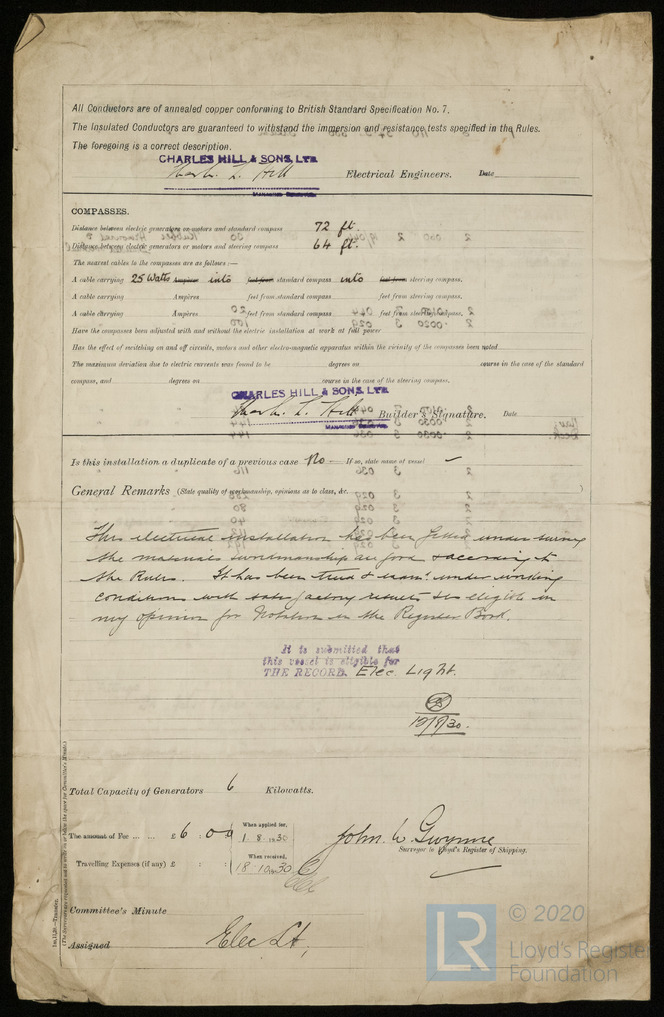 All Conductors are of annealed copper conforming to British Standard Specification No. 7.
The Insulated Conductors are guaranteed to withstand the immersion and resistance tests specified in the Rules.
The foregoing is a correct description.
CHARLES HILL & SONS, LTD.
Charles L. Hill Electrical Engineers. Date
MANAGING DIRECTOR.
COMPASSES.
Distance between electric generators or motors and standard compass 72 ft.
Distance between electric generators or motors and steering compass 64 ft.
The nearest cables to the compasses are as follows:—
A cable carrying 25 Watts Ampères into feet from standard compass into feet from steering compass.
A cable carrying Ampères feet from standard compass feet from steering compass.
A cable carrying Ampères feet from standard compass feet from steering compass.
Have the compasses been adjusted with and without the electric installation at work at full power
Has the effect of switching on and off circuits, motors and other electro-magnetic apparatus within the vicinity of the compasses been noted
The maximum deviation due to electric currents was found to be degrees on course in the case of the standard
compass, and degrees on course in the case of the steering compass.
CHARLES HILL & SONS, LTD.
Charles L. Hill Builder's Signature. Date
MANAGING DIRECTOR.
Is this installation a duplicate of a previous case No If so, state name of vessel
General Remarks (State quality of workmanship, opinions as to class, &c.)
This electrical installation has been fitted under survey
the materials & workmanship are good & according to
the Rules. It has been tried & exam. under working
conditions with satisfactory results & is eligible in
my opinion for Notation in the Register Book.
It is submitted that
this vessel is eligible for
THE RECORD. Elec. Light.
19/8/30.
Total Capacity of Generators 6 Kilowatts.
The amount of Fee ... ... £ 6 : 0 : 0
When applied for,
1. 8. 1930
Travelling Expenses (if any) £ : :
When received,
18.10.1930
John W. Gwynne
Surveyor to Lloyd's Register of Shipping.
Committee's Minute
Assigned Elec Lt,
(The Surveyors are requested not to write on or below the space for Committee's Minute.)
LR
© 2020
Lloyd's Register
Foundation